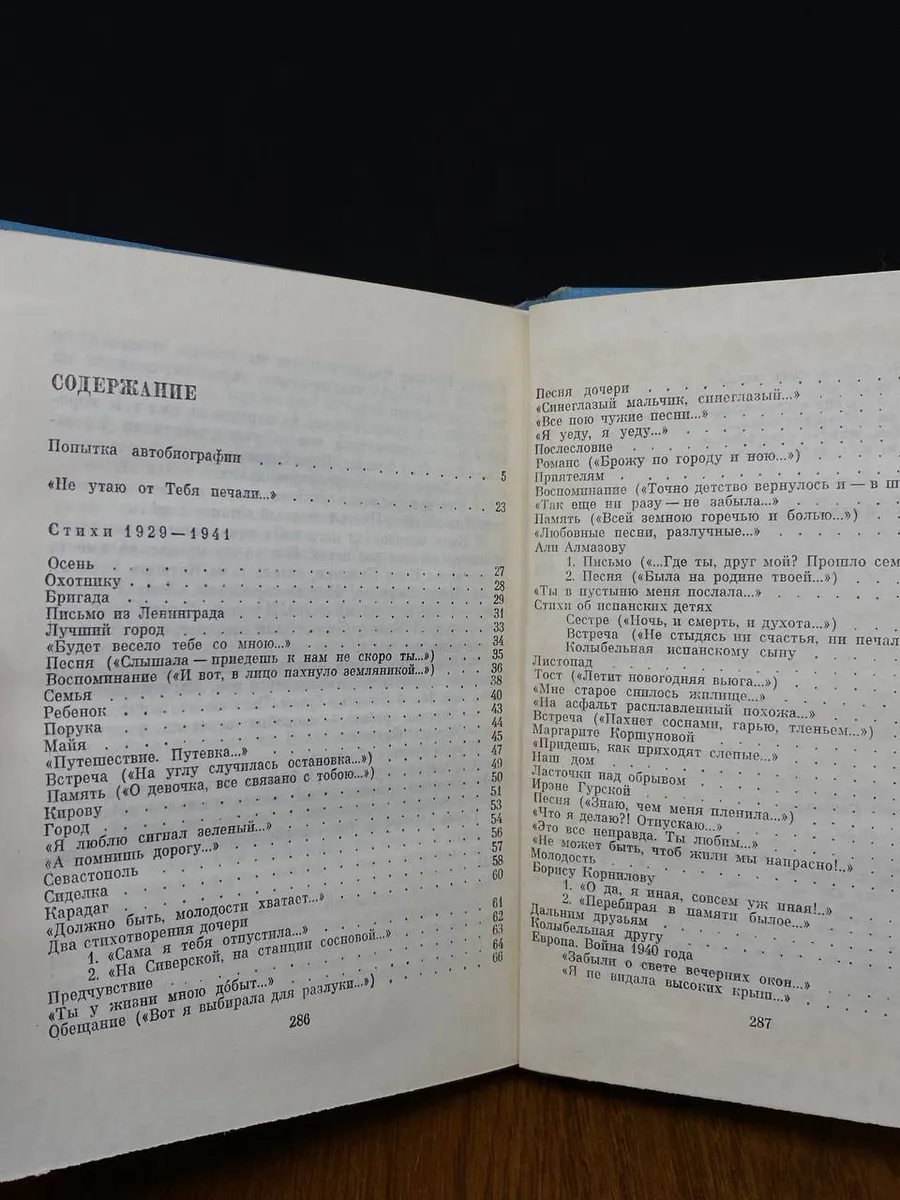 СОДЕРЖАНИЕ
Попытка автобиографии . . . . . . . . . . . 5
«Не утаю от Тебя печали...» . . . . . . . . . . 23
Стихи 1929—1941
Осень . . . . . . . . . . 27
Охотнику . . . . . . . . . . 28
Бригада . . . . . . . . . . 29
Письмо из Ленинграда . . . . . . . . . . 31
Лучший город . . . . . . . . . . 33
«Будет весело тебе со мною...» . . . . . . . . . . 34
Песня («Слышала — приедешь к нам не скоро ты...») . . . 35
Воспоминание («И вот, в лицо пахнуло земляникой...») . . 36
Семья . . . . . . . . . . 38
Ребенок . . . . . . . . . . 40
Порука . . . . . . . . . . 43
Майя . . . . . . . . . . 44
«Путешествие. Путевка...» . . . . . . . . . . 45
Встреча («На углу случилась остановка...») . . . . . 47
Память («О девочка, все связано с тобою...») . . . . . 49
Кирову . . . . . . . . . . 50
Город . . . . . . . . . . 51
«Я люблю сигнал зеленый...» . . . . . . . . . . 53
«А помнишь дорогу...» . . . . . . . . . . 54
Севастополь . . . . . . . . . . 56
Сиделка . . . . . . . . . . 57
Карадаг . . . . . . . . . . 58
«Должно быть, молодости хватает...» . . . . . . . 60
Два стихотворения дочери
1. «Сама я тебя отпустила...» . . . . . . . 61
2. «На Сиверской, на станции сосновой...» . . . . . 62
Предчувствие . . . . . . . . . . 63
«Ты у жизни мною дóбыт...» . . . . . . . . . . 64
Обещание («Вот я выбирала для разлуки...») . . . . . 66
286
Песня дочери . . . . . . . . . .
«Синеглазый мальчик, синеглазый...» . . . . .
«Все пою чужие песни...» . . . . . . .
«Я уеду, я уеду...» . . . . . . . .
Послесловие . . . . . . . . . .
Романс («Брожу по городу и ною...») . . . . .
Приятелям . . . . . . . . . .
Воспоминание («Точно детство вернулось и — в ш
«Так еще ни разу — не забыла...» . . . . .
Память («Всей земною горечью и болью...») . . .
«Любовные песни, разлучные...» . . . . .
Али Алмазову
1. Письмо («...Где ты, друг мой? Прошло сем
2. Песня («Была на родине твоей...») . . . .
«Ты в пустыню меня послала...» . . . . .
Стихи об испанских детях
Сестре («Ночь, и смерть, и духота...») . . .
Встреча («Не стыдясь ни счастья, ни печал
Колыбельная испанскому сыну . . . .
Листопад . . . . . . . . . .
Тост («Летит новогодняя вьюга...») . . . . .
«Мне старое снилось жилище...» . . . . .
«На асфальт расплавленный похожа...» . . . .
Встреча («Пахнет соснами, гарью, тленьем...») . .
Маргарите Коршуновой . . . . . . .
«Придешь, как приходят слепые...» . . . . .
Наш дом . . . . . . . . . .
Ласточки над обрывом . . . . . . .
Ирэне Гурской . . . . . . . .
Песня («Знаю, чем меня пленила...») . . . . .
«Что я делаю?! Отпускаю...» . . . . . .
«Это все неправда. Ты любим...» . . . . .
«Не может быть, чтоб жили мы напрасно!..» . . .
Молодость . . . . . . . . . .
Борису Корнилову
1. «О да, я иная, совсем уж иная!..» . . . .
2. «Перебирая в памяти былое...» . . . .
Дальним друзьям . . . . . . . .
Колыбельная другу . . . . . . . .
Европа. Война 1940 года
«Забыли о свете вечерних окон...» . . . .
«Я не видала высоких крыш...» . . . .
287